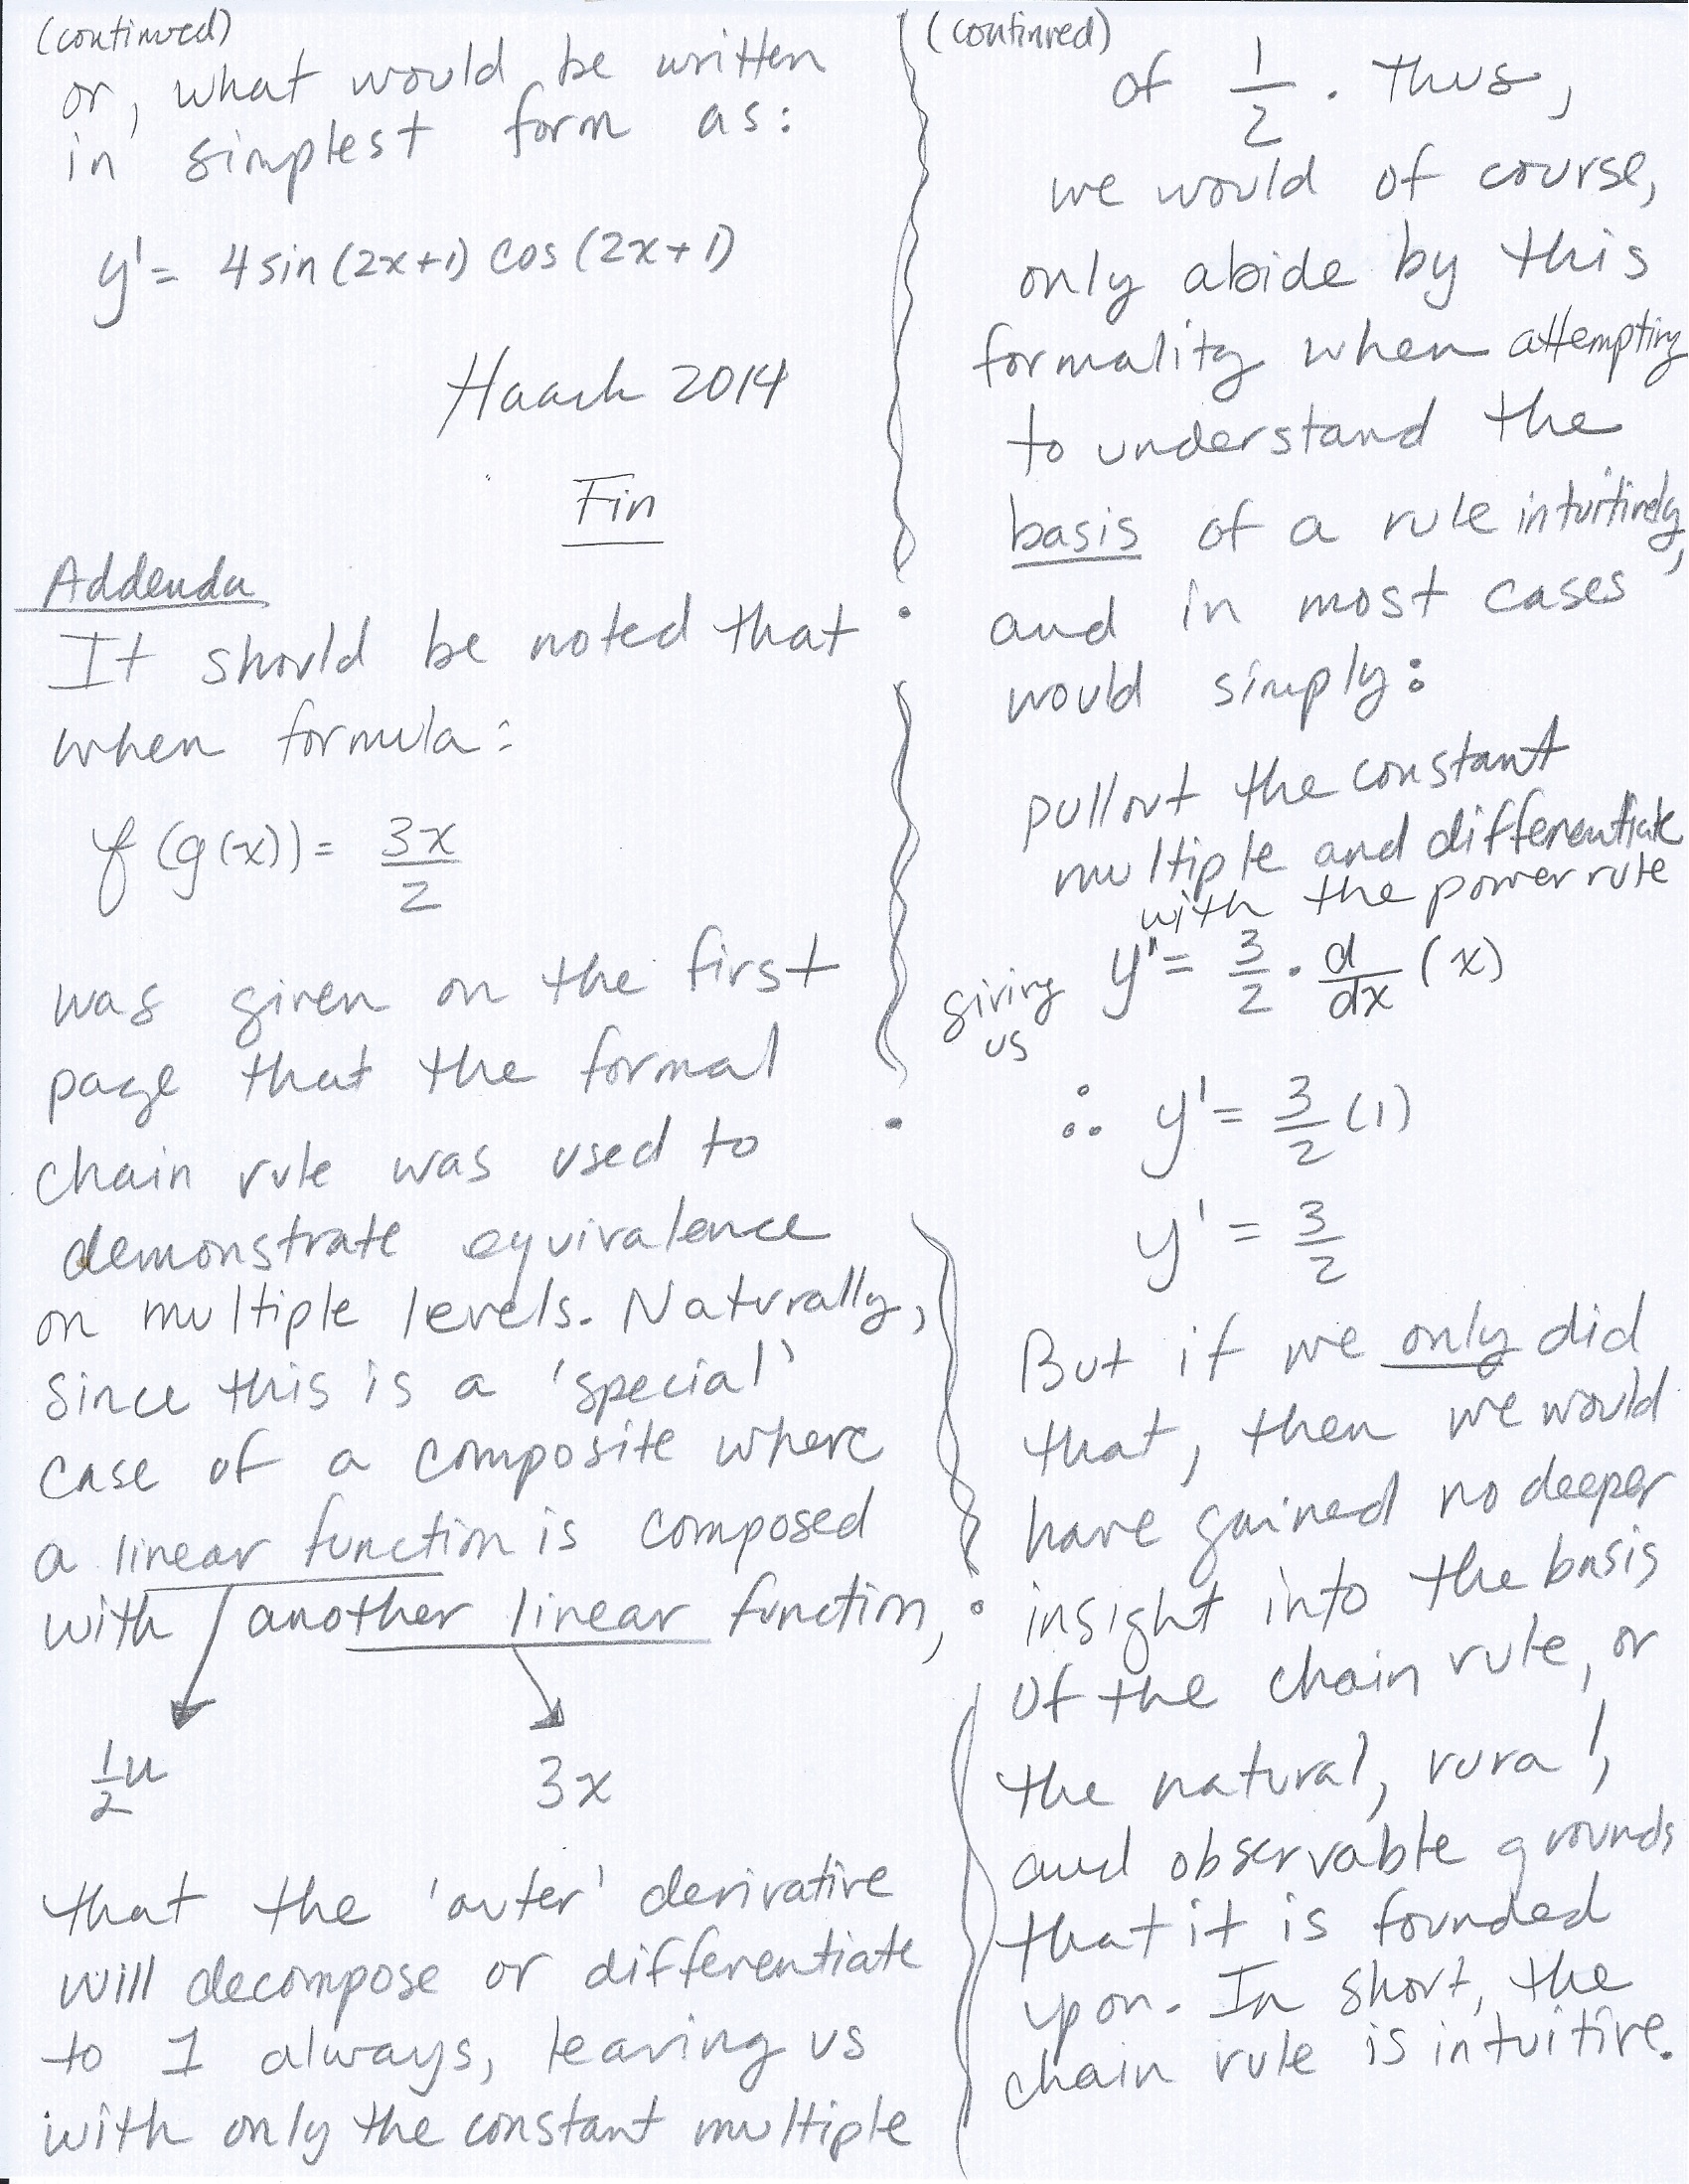 (continued)
or, what would be written
in simplest form as:
y' = 4 sin (2x+1) cos (2x+1)
Haack 2014
Fin
Addenda
It should be noted that
when formula:
f(g(x)) = 3x/2
was given on the first
page that the formal
chain rule was used to
demonstrate equivalence
on multiple levels. Naturally,
since this is a 'special'
case of a composite where
a linear function is composed
with another linear function,
1/2 u 3x
that the 'outer' derivative
will decompose or differentiate
to 1 always, leaving us
with only the constant multiple
(continued)
of 1/2. Thus,
we would of course,
only abide by this
formality when attempting
to understand the
basis of a rule intuitively,
and in most cases
would simply:
pull out the constant
multiple and differentiate
with the power rule
giving us y' = 3/2 · d/dx (x)
∴ y' = 3/2 (1)
y' = 3/2
But if we only did
that, then we would
have gained no deeper
insight into the basis
of the chain rule, or
the natural, rural,
and observable grounds
that it is founded
upon. In short, the
chain rule is intuitive.